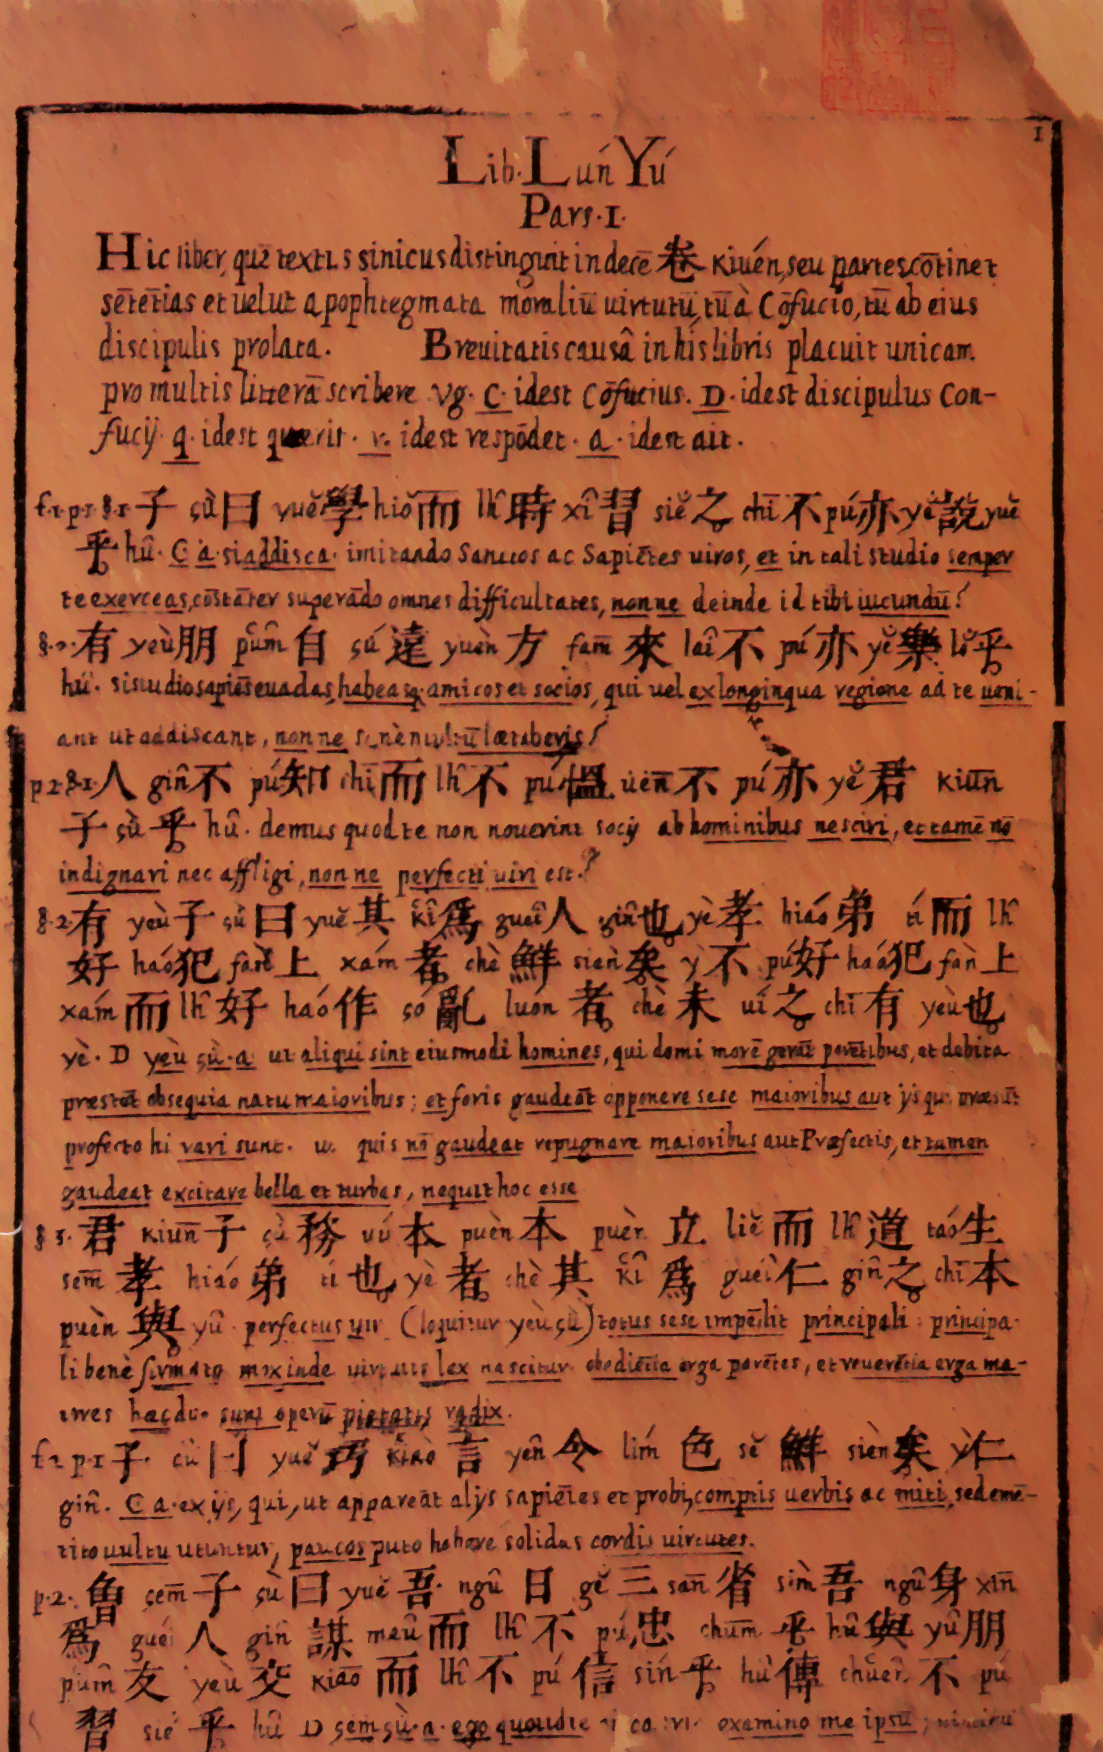 1
Lib. Lún Yú
Pars. 1.
Hic liber, quē textus sinicus distinguit in decē 卷 Kiuén, seu partes, cōtinet
sētētias et uelut apophtegmata moraliū uirtutū, tū à Cōfucio, tū ab eius
discipulis prolata. Breuitatis causâ in hís libris placuit unicam
pro multis litterā scribere Vg. C. idest Cōfucius. D. idest discipulus Con-
fucij q. idest quærit. r. idest respōdet. a. idest ait.
f.1. p.1. §.1 子 çù 曰 yuĕ 學 hiŏ 而 lh̑ 時 xî 習 siĕ 之 chī 不 pú 亦 yĕ 說 yuĕ
乎 hû. C a. si addisca imitando Sanctos ac Sapiētes uiros, et in tali studio semper
te exerceas, cōstāter superādo omnes difficultates, nonne deinde id tibi iucundū?
§.2. 有 yeù 朋 pûm 自 çú 遠 yuèn 方 fam̄ 來 laî 不 pú 亦 yĕ 樂 lŏ 乎
hû. si studio sapiēs euadas, habeasq. amicos et socios, qui uel ex longinqua regione ad te ueni-
ant ut addiscant, nonne lætaberis?
p.2. §.1. 人 gin̂ 不 pú 知 chī 而 lh̑ 不 pú 慍 uén 不 pú 亦 yĕ 君 Kiun̄
子 çù 乎 hû. demus quod te non nouerint socij ab hominibus nesciri, et tamē nō
indignari nec affligi, nonne perfecti uiri est?
§.2 有 yeù 子 çù 曰 yuĕ 其 kî 爲 gueî 人 gin̂ 也 yè 孝 hiáo 弟 tí 而 lh̑
好 háo 犯 fàn 上 xám 者 chè 鮮 sièn 矣 ỳ 不 pú 好 háo 犯 fàn 上
xám 而 lh̑ 好 háo 作 çó 亂 luón 者 chè 未 uí 之 chī 有 yeù 也
yè. D yeù çù. a. ut aliqui sint eiusmodi homines, qui domi morē gerāt parētibus, et debita
præstēt obsequia natu maioribus; et foris gaudeāt opponere sese maioribus aut ijs qui præsūt
profecto hi rari sunt. quis nō gaudeat repugnare maioribus aut Præfectis, et tamen
gaudeat excitare bella et turbas, nequit hoc esse
§ 3. 君 Kiun̄ 子 çù 務 uú 本 puèn 本 puèn 立 liĕ 而 lh̑ 道 táo 生
sem̄ 孝 hiáo 弟 tí 也 yè 者 chè 其 kî 爲 gueî 仁 gin̂ 之 chī 本
puèn 與 yû. perfectus uir (loquitur yeù çù) totus sese impēdit principali: principa-
li benè firmato mox inde uirtutis lex nascitur. obediētia erga parētes, et reuerētia erga ma-
iores hæc duo sunt operū pietatis radix.
f.2 p.1 子 çù 曰 yuĕ 巧 kiào 言 yên 令 lím 色 sĕ 鮮 sièn 矣 ỳ 仁
gin̂. C a. ex ijs, qui, ut appareāt alijs sapiētes et probi, comptis uerbis ac miti, sed emē-
tito uultu utuntur, paucos puto habere solidas cordis uirtutes.
p.2. 曾 çem̄ 子 çù 曰 yuĕ 吾 ngû 日 gĕ 三 san̄ 省 sìm 吾 ngû 身 xin̄
爲 gueí 人 gin̂ 謀 meû 而 lh̑ 不 pú 忠 chum̄ 乎 hû 與 yû 朋
pûm 友 yeù 交 kiāo 而 lh̑ 不 pú 信 sín 乎 hû 傳 chuên 不 pú
習 siĕ 乎 hû D çem̄ çù. a. ego quotidie examino me ipsū;